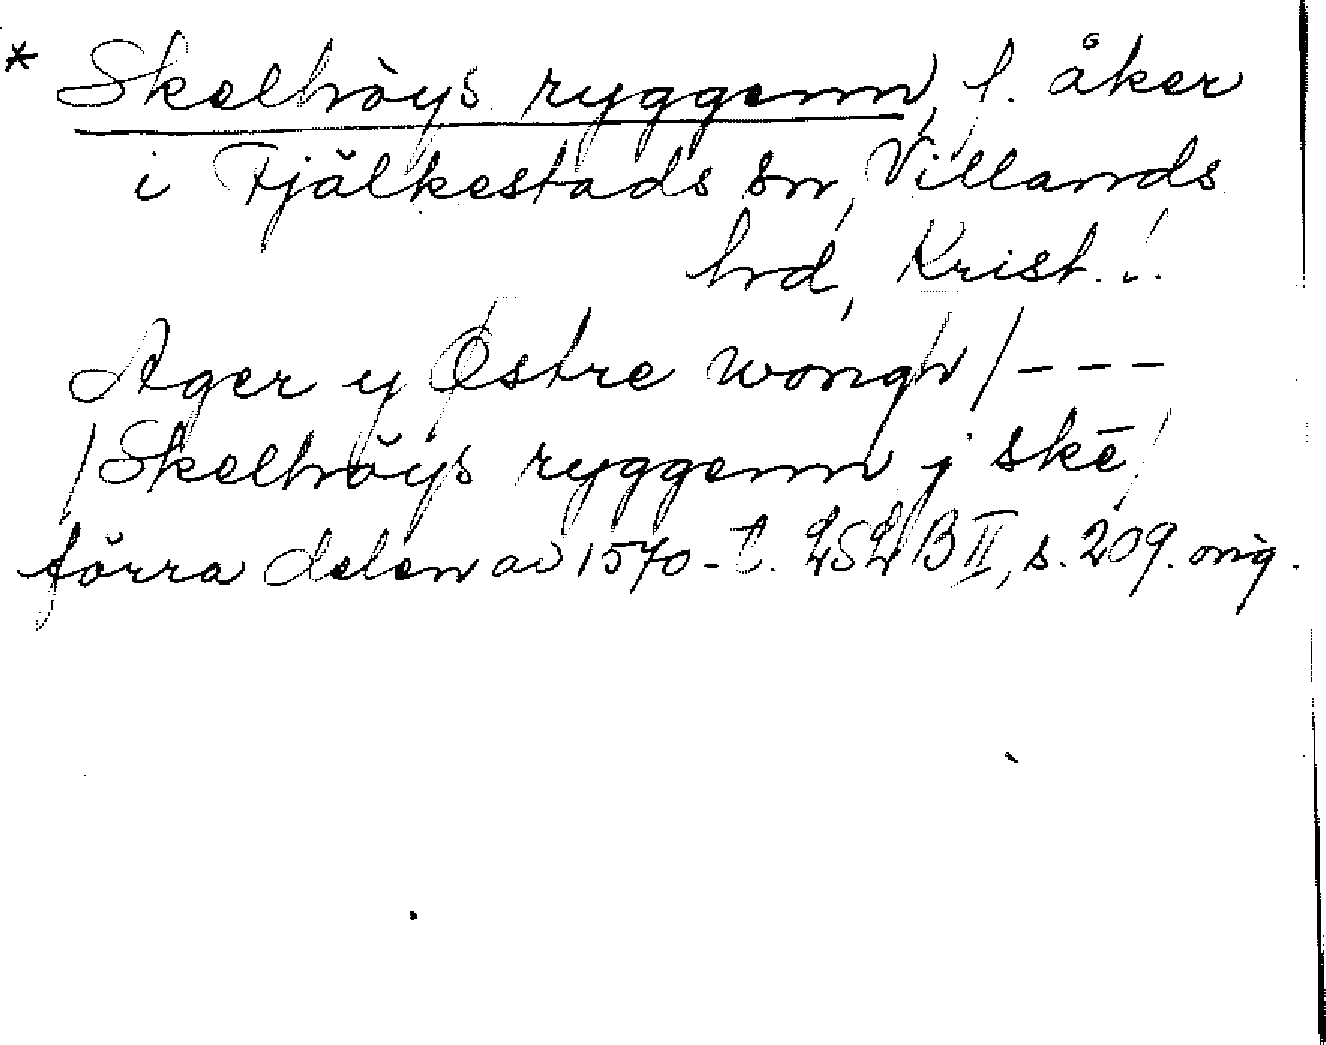 * Skelhöys ryggenn, f. åker
i Fjälkestads sn, Villands
hd, Krist. !
Ager y Østre wongh / - - -
/ Skelhöys ryggenn j skē /
förra delen av 1570-t. LSLB II, s. 209. orig.